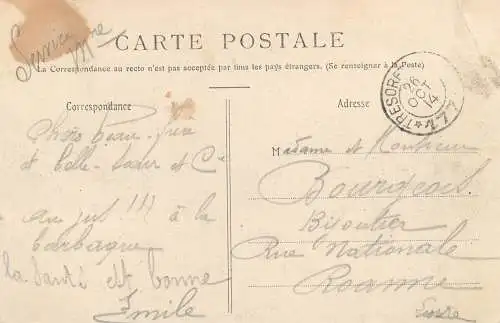 Service Mre
CARTE POSTALE
La Correspondance au recto n'est pas acceptée par tous les pays étrangers. (Se renseigner à la Poste)
Correspondance
Adresse
TRESOR
26 OCT 14
Chers beau-frère
et belle-sœur et Cie
au jus !!! à la
barbaque
la santé est bonne
Emile
Madame et Monsieur
Bourgeois
Bijoutier
Rue Nationale
Roanne
Loire